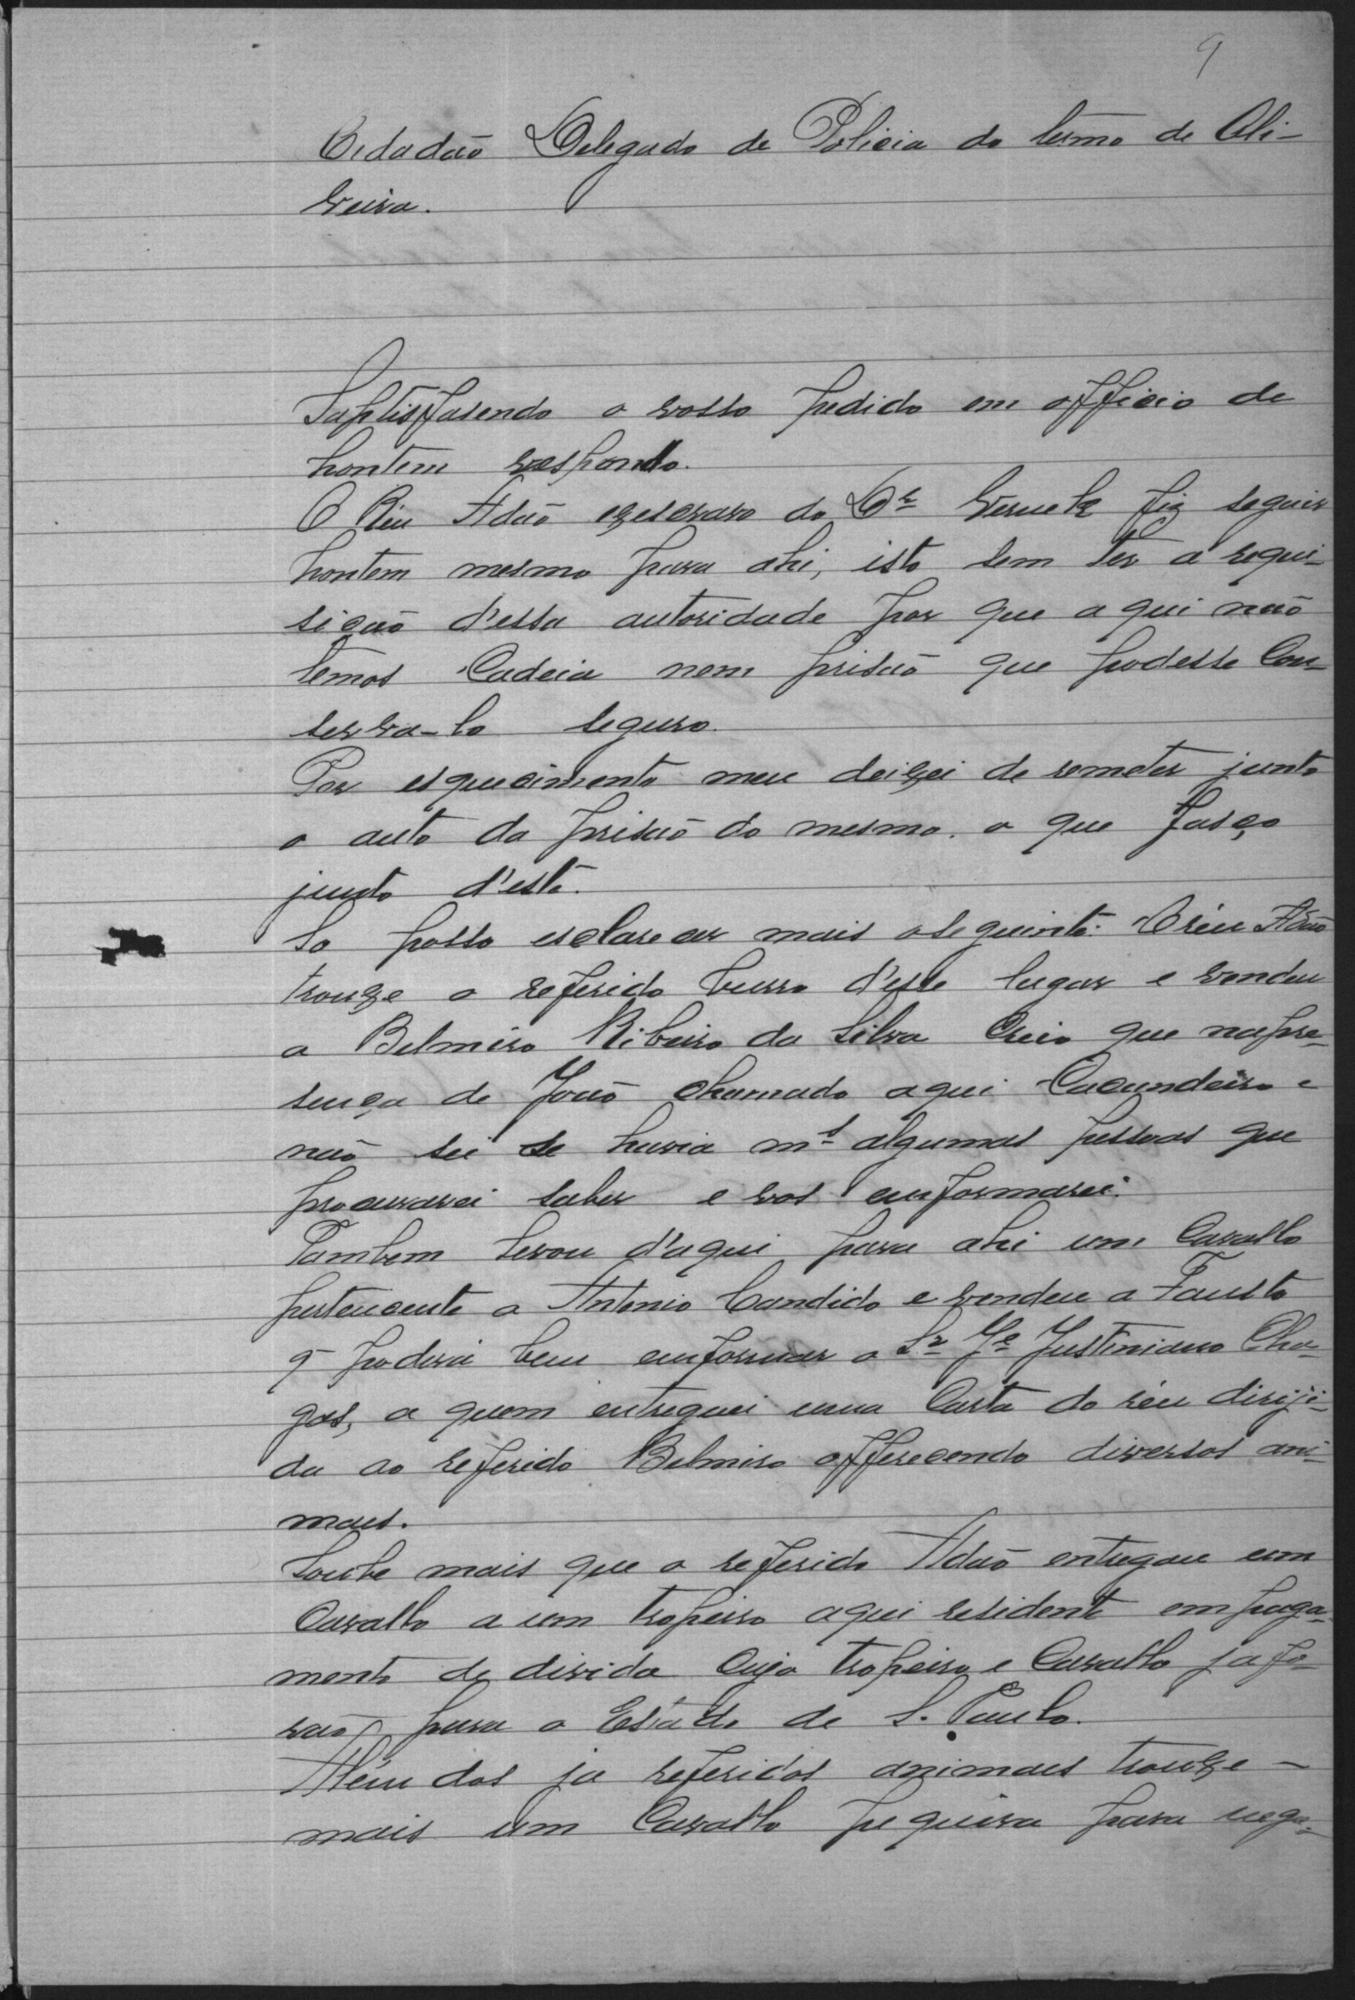 9
Cidadão Delegado de Policia do termo de Oli-
veira.
Saptisfasendo o vosso pedido em officio de
hontem respondo.
O Réu Adão exescravo do Dr Verneck fiz seguir
hontem mesmo para ahi, isto sem ter a requi-
sição d'essa autoridade por que aqui não
temos Cadeia nem prisão que podesse Con-
serva-lo seguro.
Por esquecimento meu deixei de remeter junto
o auto da prisão do mesmo. o que fasço
junto d'este.
So posso esclarecer mais oseguinte: O réu Adão
trouxe o referido burro d'esse lugar e vendeu
a Belmiro Ribeiro da Silva Creio que napre-
sença de João chamado aqui Cacundeiro e
não sei se havia ms algumas pessoas que
procurarei saber e vos emformarei.
Tambem levou d'aqui para ahi um Cavallo
pertencente a Antonio Candido e vendeu a Fausto
q poderá bem emformar o Sr Je Justiniano Cha-
gas, a quem entreguei uma Carta do réu diriji-
da ao referido Belmiro offferecendo diversos ani-
maes.
Soube mais que o referido Adão entregou um
Cavallo a um tropeiro aqui residente em paga-
mento de divida Cujo tropeiro e Cavallo ja fo-
rão para o Estado de S. Paulo.
Além dos ja referidos animaes trouxe -
mais um Cavallo pequira para nego-